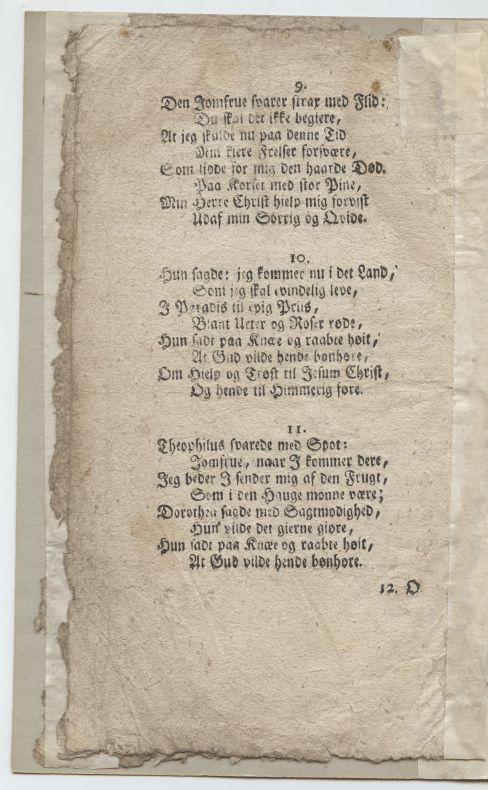 9.
Den Jomfrue svarer strax med Flid:
Du skal det ikke begiere,
At jeg skulde nu paa denne Tid
Min kiere Frelser forsvære,
Som liide for mig den haarde Død.
Paa Korset med stor Pine,
Min Herre Christ hielp mig forvist
Udaf min Sorrig og Qvide.
10.
Hun sagde: jeg kommer nu i det Land,
Som jeg skal evindelig leve,
I Paradis til evig Priis,
Blant Urter og Roser røde,
Hun sadt paa Knæe og raabte høit,
At Gud vilde hende bønhøre,
Om Hielp og Trøst til Jesum Christ,
Og hende til Himmerig føre.
11.
Theophilus svarede med Spot:
Jomfrue, naar I kommer dere,
Jeg beder I sender mig af den Frugt,
Som i den Hauge monne være;
Dorothea sagde med Sagtmodighed,
Hun vilde det gierne giøre,
Hun sadt paa Knæe og raabte høit,
At Gud vilde hende bønhøre.
12. O